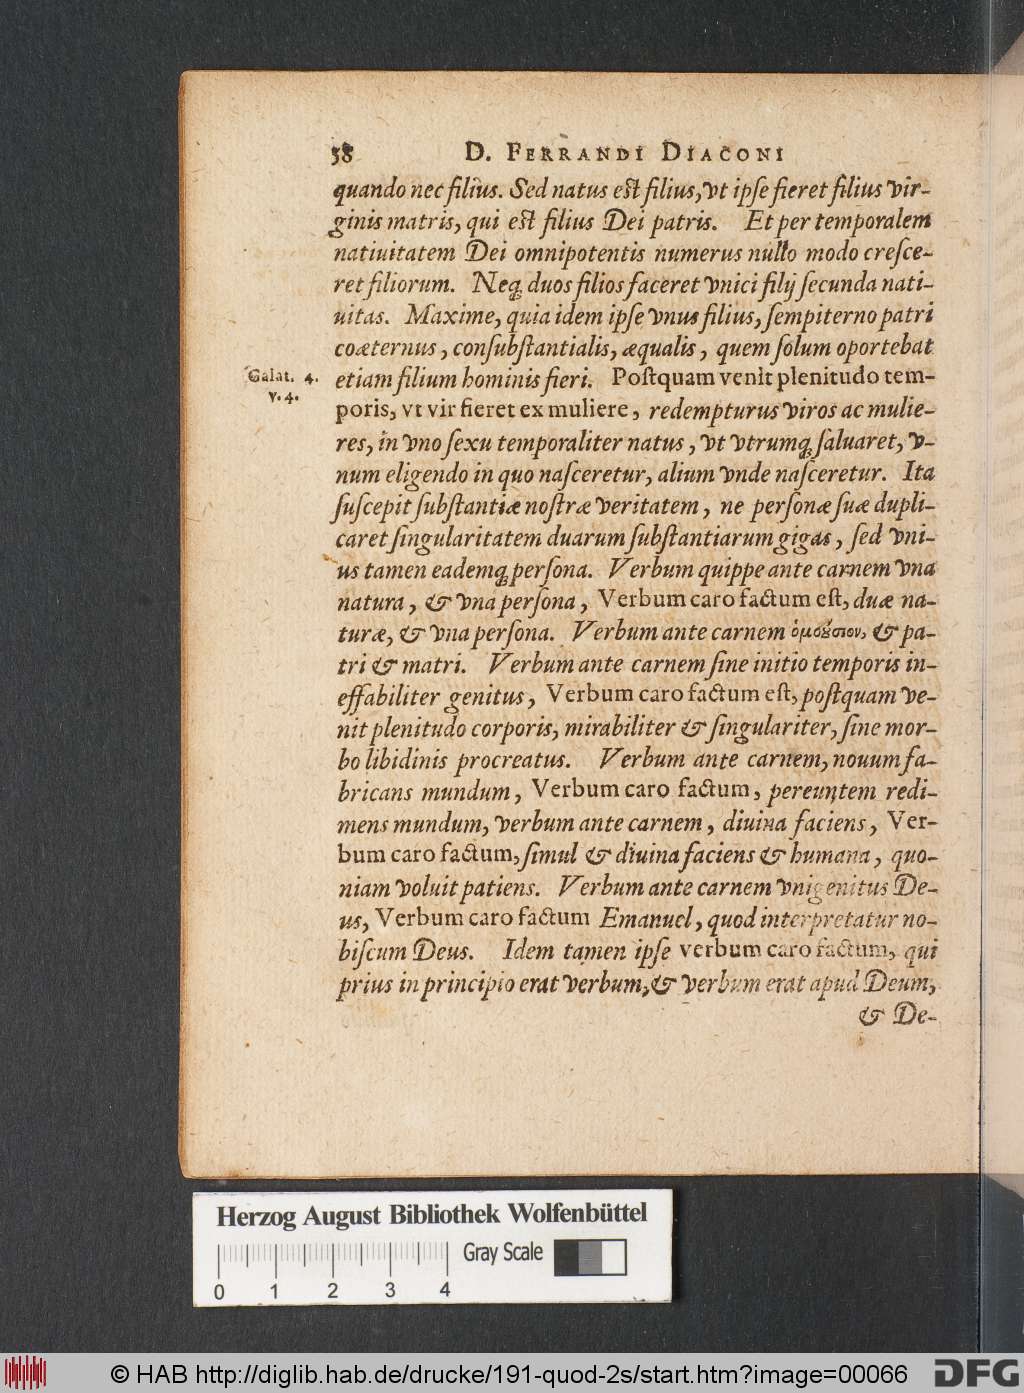 58 D. FERRANDI DIACONI
quando nec filius. Sed natus est filius, vt ipſe fieret filius vir-
ginis matris, qui est filius Dei patris. Et per temporalem
natiuitatem Dei omnipotentis numerus nullo modo creſce-
ret filiorum. Neq; duos filios faceret vnici filij ſecunda nati-
uitas. Maxime, quia idem ipſe vnus filius, ſempiterno patri
coæternus, conſubſtantialis, æqualis, quem ſolum oportebat
Galat. 4.
v. 4.
etiam filium hominis fieri. Poſtquam venit plenitudo tem-
poris, vt vir fieret ex muliere, redempturus viros ac mulie-
res, in vno ſexu temporaliter natus, vt vtrumq; ſaluaret, v-
num eligendo in quo naſceretur, alium vnde naſceretur. Ita
ſuſcepit ſubſtantiæ noſtræ veritatem, ne perſonæ ſuæ dupli-
caret ſingularitatem duarum ſubſtantiarum gigas, ſed vni-
us tamen eademq; perſona. Verbum quippe ante carnem vna
natura, & vna perſona, Verbum caro factum eſt, duæ na-
turæ, & vna perſona. Verbum ante carnem ὁμοȣ́σιον, & pa-
tri & matri. Verbum ante carnem ſine initio temporis in-
effabiliter genitus, Verbum caro factum eſt, poſtquam ve-
nit plenitudo corporis, mirabiliter & ſingulariter, ſine mor-
bo libidinis procreatus. Verbum ante carnem, nouum fa-
bricans mundum, Verbum caro factum, pereuntem redi-
mens mundum, verbum ante carnem, diuina faciens, Ver-
bum caro factum, ſimul & diuina faciens & humana, quo-
niam voluit patiens. Verbum ante carnem vnigenitus De-
us, Verbum caro factum Emanuel, quod interpretatur no-
biſcum Deus. Idem tamen ipſe verbum caro factum, qui
prius in principio erat verbum, & verbum erat apud Deum,
& De-
Herzog August Bibliothek Wolfenbüttel
Gray Scale
0 1 2 3 4
© HAB http://diglib.hab.de/drucke/191-quod-2s/start.htm?image=00066
DFG